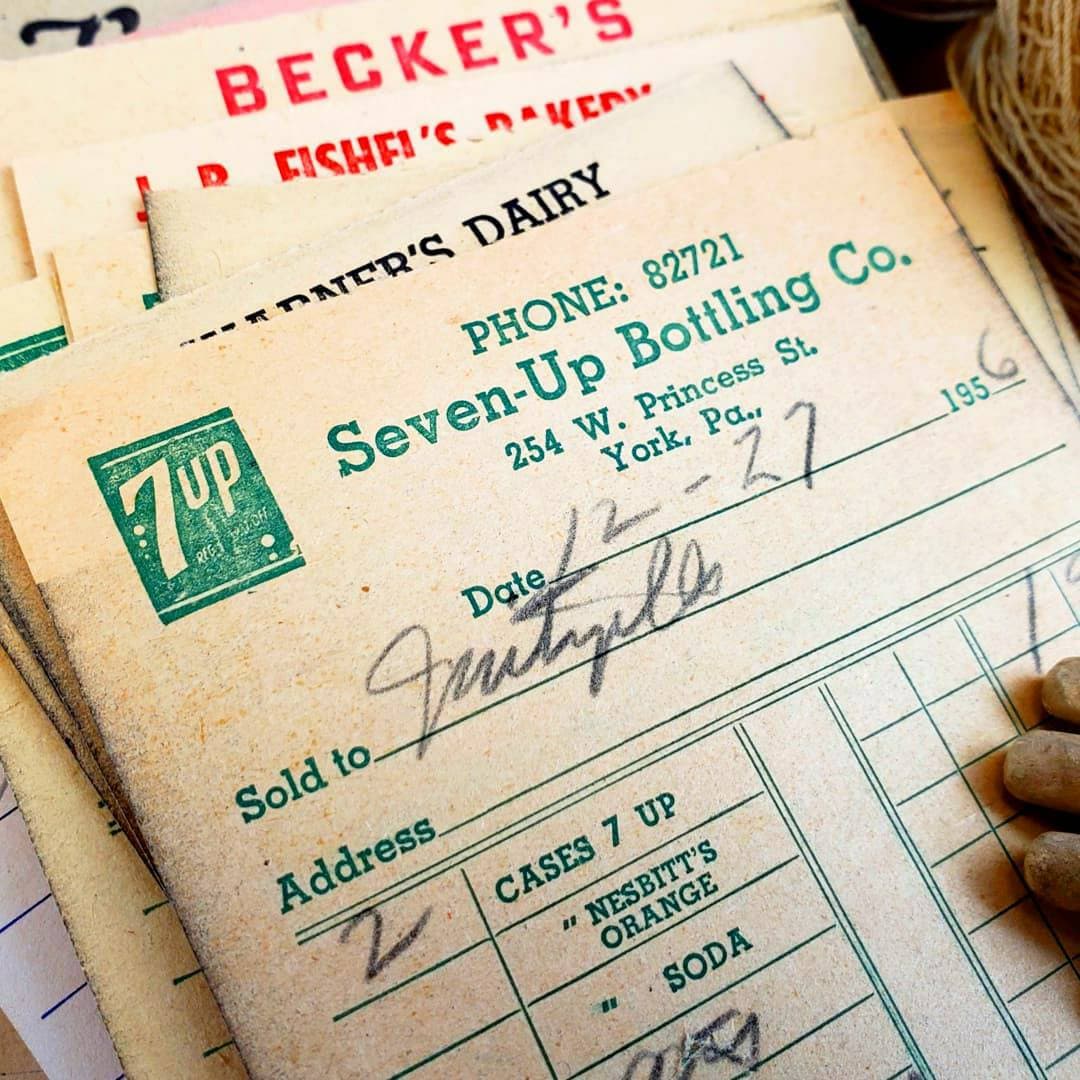 BECKER'S
J. B. FISHEL'S BAKERY
WARNER'S DAIRY
PHONE: 82721
Seven-Up Bottling Co.
254 W. Princess St.
York, Pa.,
7UP
REG. PAT. OFF.
Date 12-27 1956
Sold to
Address
2 CASES 7 UP
" NESBITT'S
ORANGE
" SODA